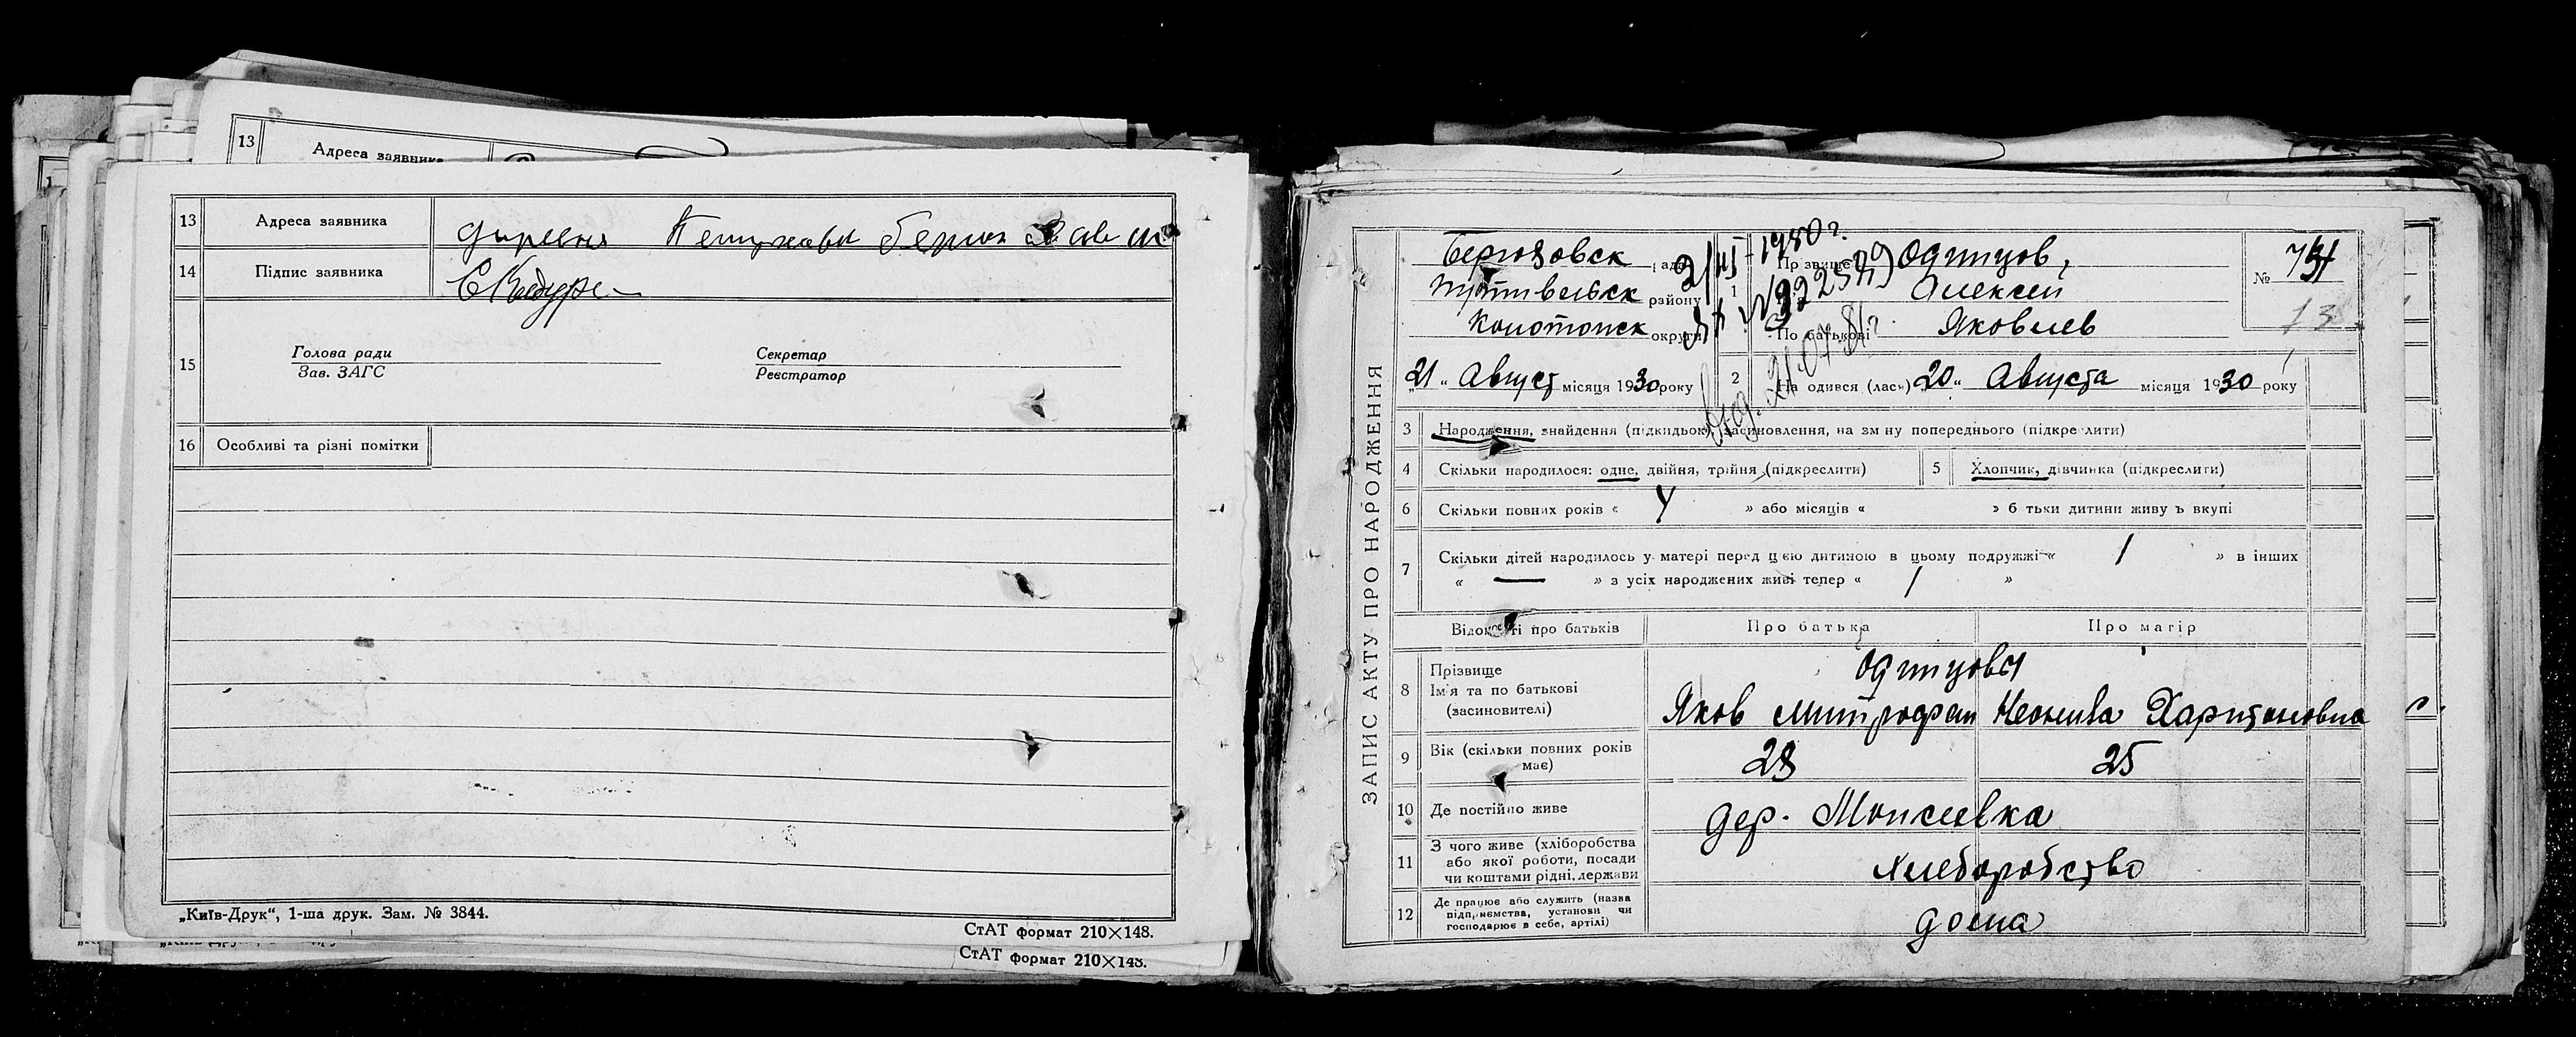 13 Адреса заявника
13 Адреса заявника деревня
14 Підпис заявника
15 Голова ради Секретар
Зав. ЗАГС Реєстратор
16 Особливі та різні помітки
„Київ-Друк“, 1-ша друк. Зам. № 3844.
СтАТ формат 210×148.
СтАТ формат 210×148.
ЗАПИС АКТУ ПРО НАРОДЖЕННЯ
Берюховск
Путивельск району
Конотопск округи
1980 г.
1 Одинцов,
Алексей
По батькові Яковлев
№
13
„21“ Август місяця 1930 року
2 На одився (лась) „20“ Августа місяця 1930 року
3 Народження, знайдення (підкидьок), засиновлення, на зм ну попереднього (підкре лити)
4 Скільки народилося: одне, двійня, трійня (підкреслити)
5 Хлопчик, дівчинка (підкреслити)
6 Скільки повних років « 4 » або місяців « » б тьки дитини живу ь вкупі
7 Скільки дітей народилось у матері перед цією дитиною в цьому подружжі « 1 » в інших
« — » з усіх народжених живі тепер « 1 »
Відомості про батьків Про батька Про матір
8 Прізвище
Ім'я та по батькові
(засиновителі)
Одинцовы
Яков Митрофан Неонила Харитоновна
9 Вік (скільки повних років
має) 28 25
10 Де постійно живе дер. Моисеевка
11 З чого живе (хліборобства
або якої роботи, посади
чи коштами рідні, держави
Хлеборобство
12 Де працює або служить (назва
підприємства, установи чи
господарює в себе, артілі)
дома